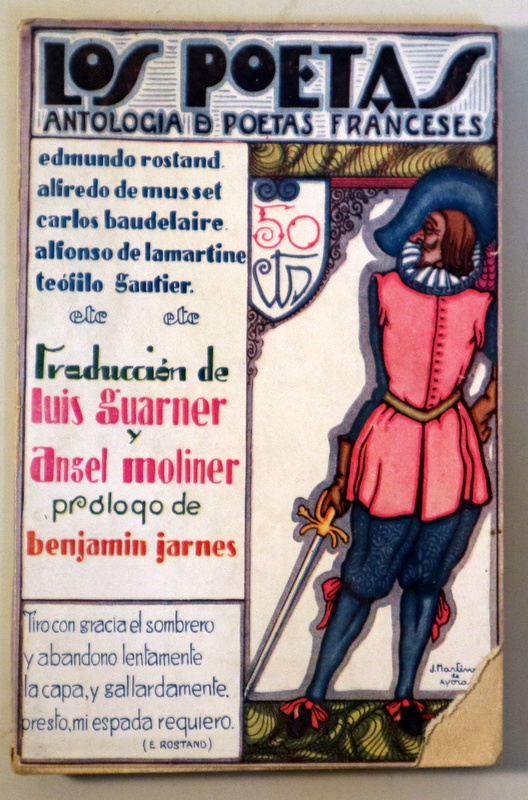 LOS POETAS
ANTOLOGIA D POETAS FRANCESES
edmundo rostand.
alfredo de musset
carlos baudelaire.
alfonso de lamartine
teófilo gautier.
etc etc
50
CTS
Traducción de
luis guarner
y
Angel moliner
prólogo de
benjamin jarnes
Tiro con gracia el sombrero
y abandono lentamente
la capa, y gallardamente.
presto, mi espada requiero.
(E ROSTAND)
J. Martinez
de
Ayora